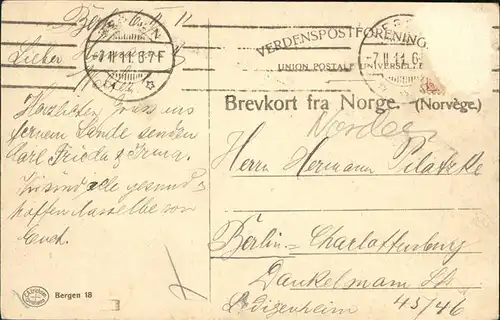 Bergen 6. II. 11
Lieber Hermann
BERGEN
-7 II 11. 6-7 F
VERDENSPOSTFORENINGEN
UNION POSTALE UNIVERSELLE
-7. II. 11. 6
Brevkort fra Norge. (Norvège.)
Norden
Herzlichen Gruss aus
fernem Lande senden
Carl Frieda & Irma.
Wir sind alle gesund &
hoffen dasselbe von
Euch.
Herrn Hermann
Berlin = Charlottenburg
Dankelmann Str
Ledigenheim 45/46
Bergen 18